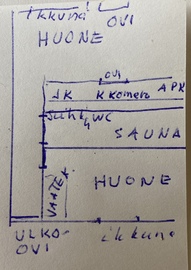 ikkuna OVI
HUONE
OVI
JK K Komero APK
Suihk WC
SAUNA
HUONE
VAATEK
ULKO-
OVI
ikkuna